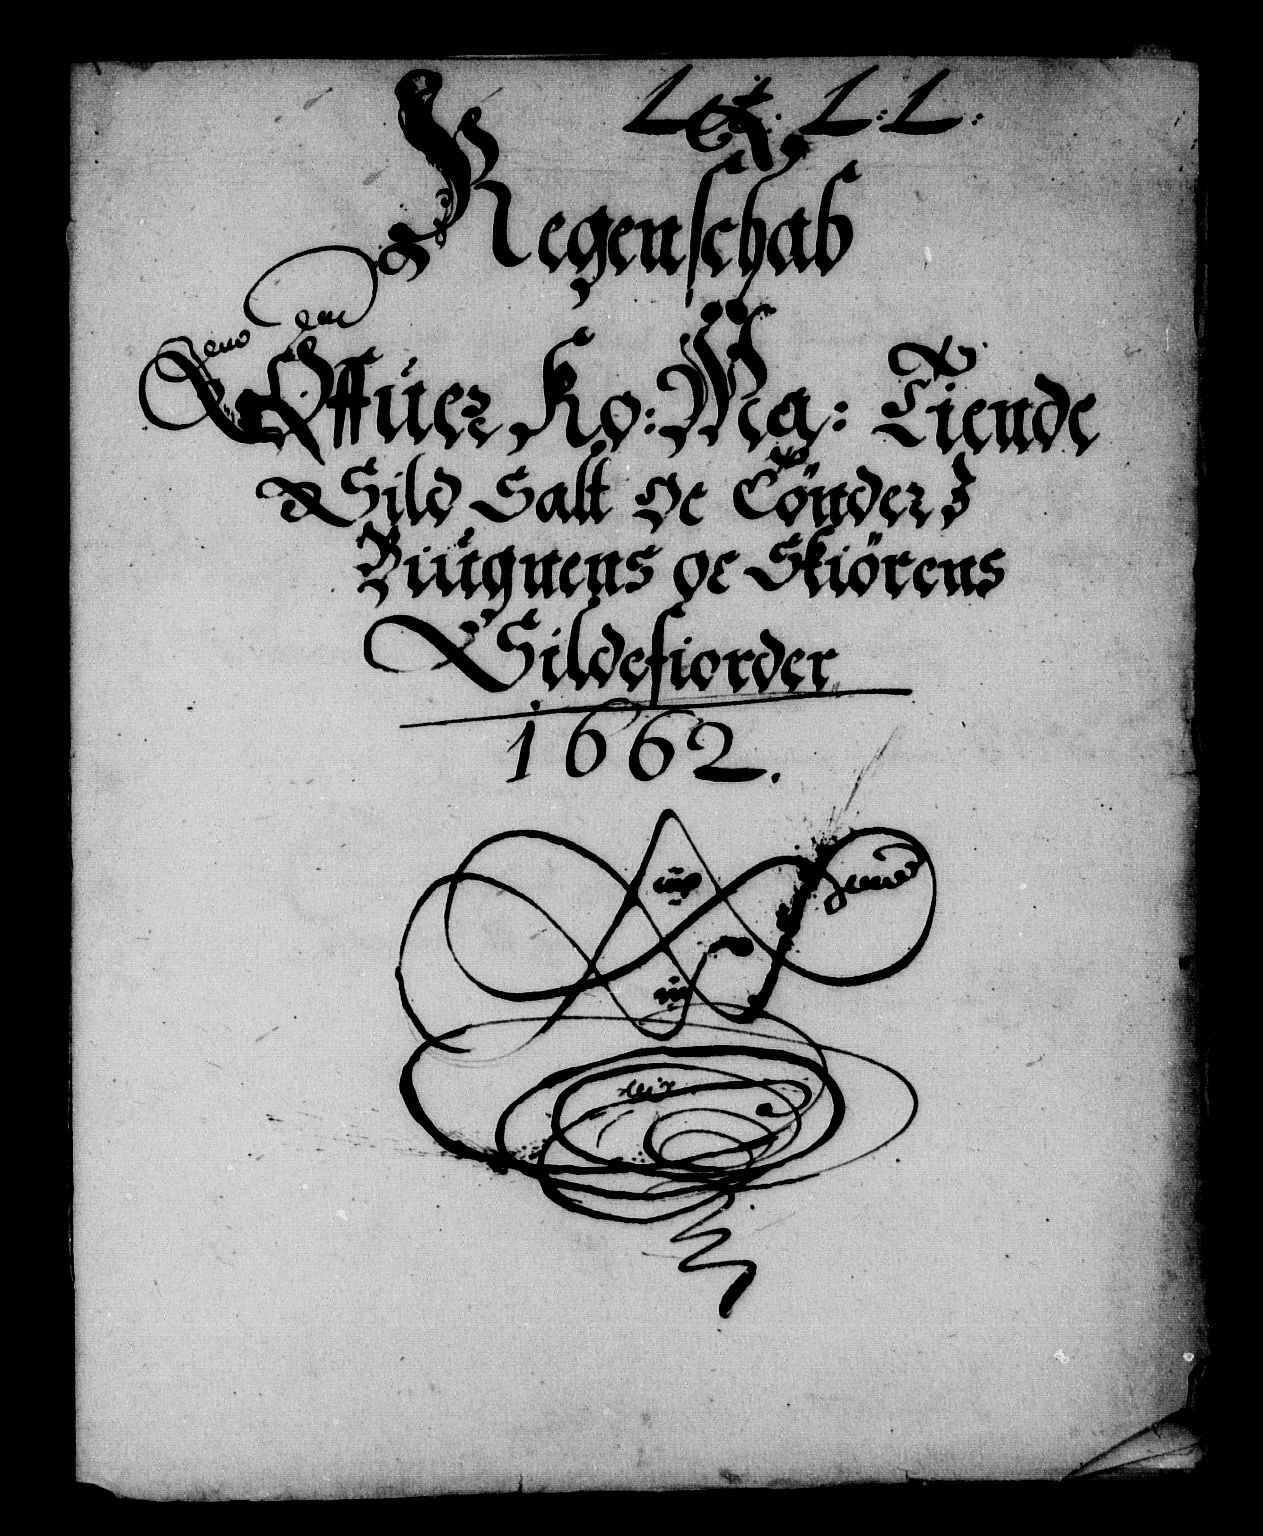 Lit. L: L:
Regenschab
Offuer Ko: Ma: Tiende
Sild Salt Oc Tönder I
Biugnens oc Skiörens
Sildefiorder
1662.